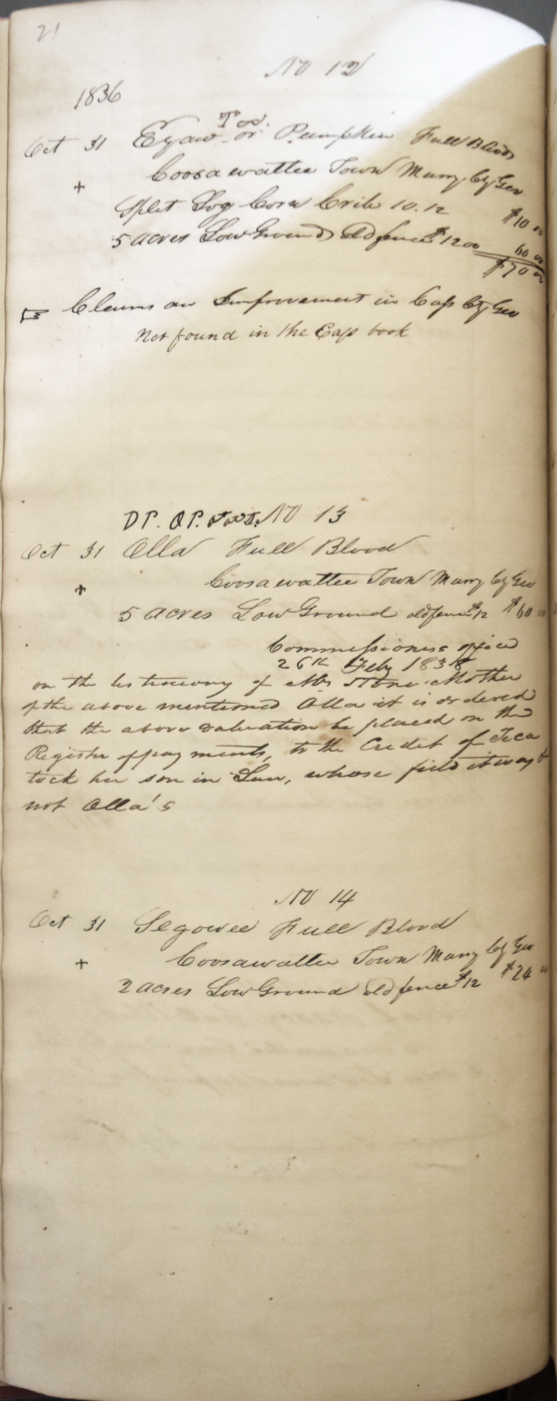 21
No 12
1836
Oct 31 Eyaw or Pumpkin Full Blood
+ Coosawattee Town Murry Cty Geo
Split Log Corn Crib 10.12 $10 00
5 acres Low Ground Old fence $12 00 60 00
$70 00
Claims an Improvement in Cass Cty Geo
Not found in the Cass book
No 13
Oct 31 Olla Full Blood
+ Coosawattee Town Murry Cty Geo
5 acres Low Ground old fence $12 $60 00
Commissioners office
26th Feby 1838
on the testimony of Mother
of the above mentioned Olla it is ordered
that the above valuation be placed on the
Register of payments, to the Credit of Teca
tock her son in Law, whose field it was &
not Olla's
No 14
Oct 31 Segowee Full Blood
+ Coosawattee Town Murry Cty Geo
2 acres Low Ground Old fence $12 $24 00